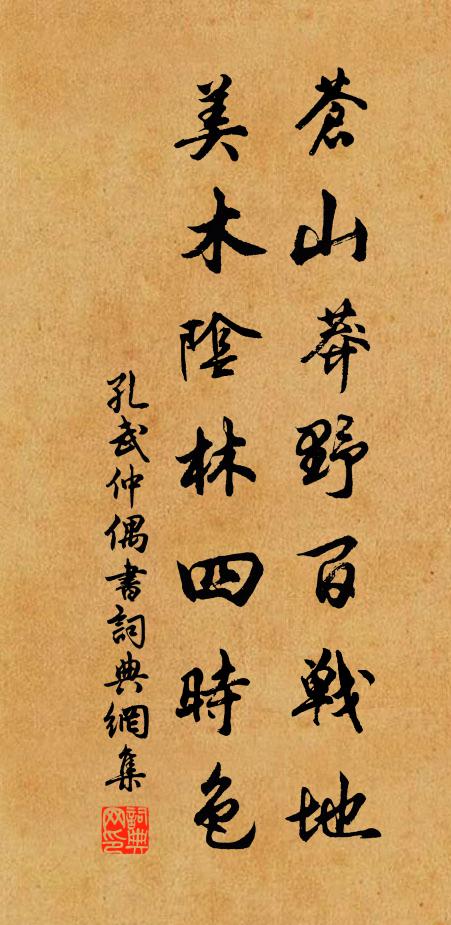 蒼山莽野百戰地
美木陰林四時色
孔武仲偶書詞典網集
詞典网印